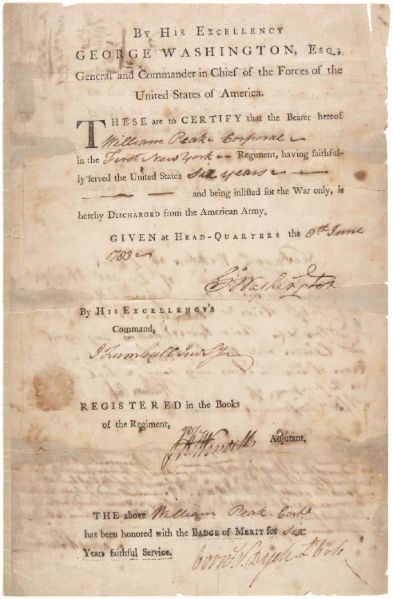 By His Excellency
GEORGE WASHINGTON, Esq;
General and Commander in Chief of the Forces of the
United States of America.
THESE are to CERTIFY that the Bearer hereof
William Peak Corporal
in the First New York Regiment, having faithful-
ly served the United States six years
and being inlisted for the War only, is
hereby DISCHARGED from the American Army.
GIVEN at HEAD-QUARTERS the 8th June
1783
Go Washington
By His EXCELLENCY'S
Command,
J Trumbull Junr Sy
REGISTERED in the Books
of the Regiment,
Adjutant.
THE above William Peak Corpl
has been honored with the BADGE of MERIT for six
Years faithful Service.